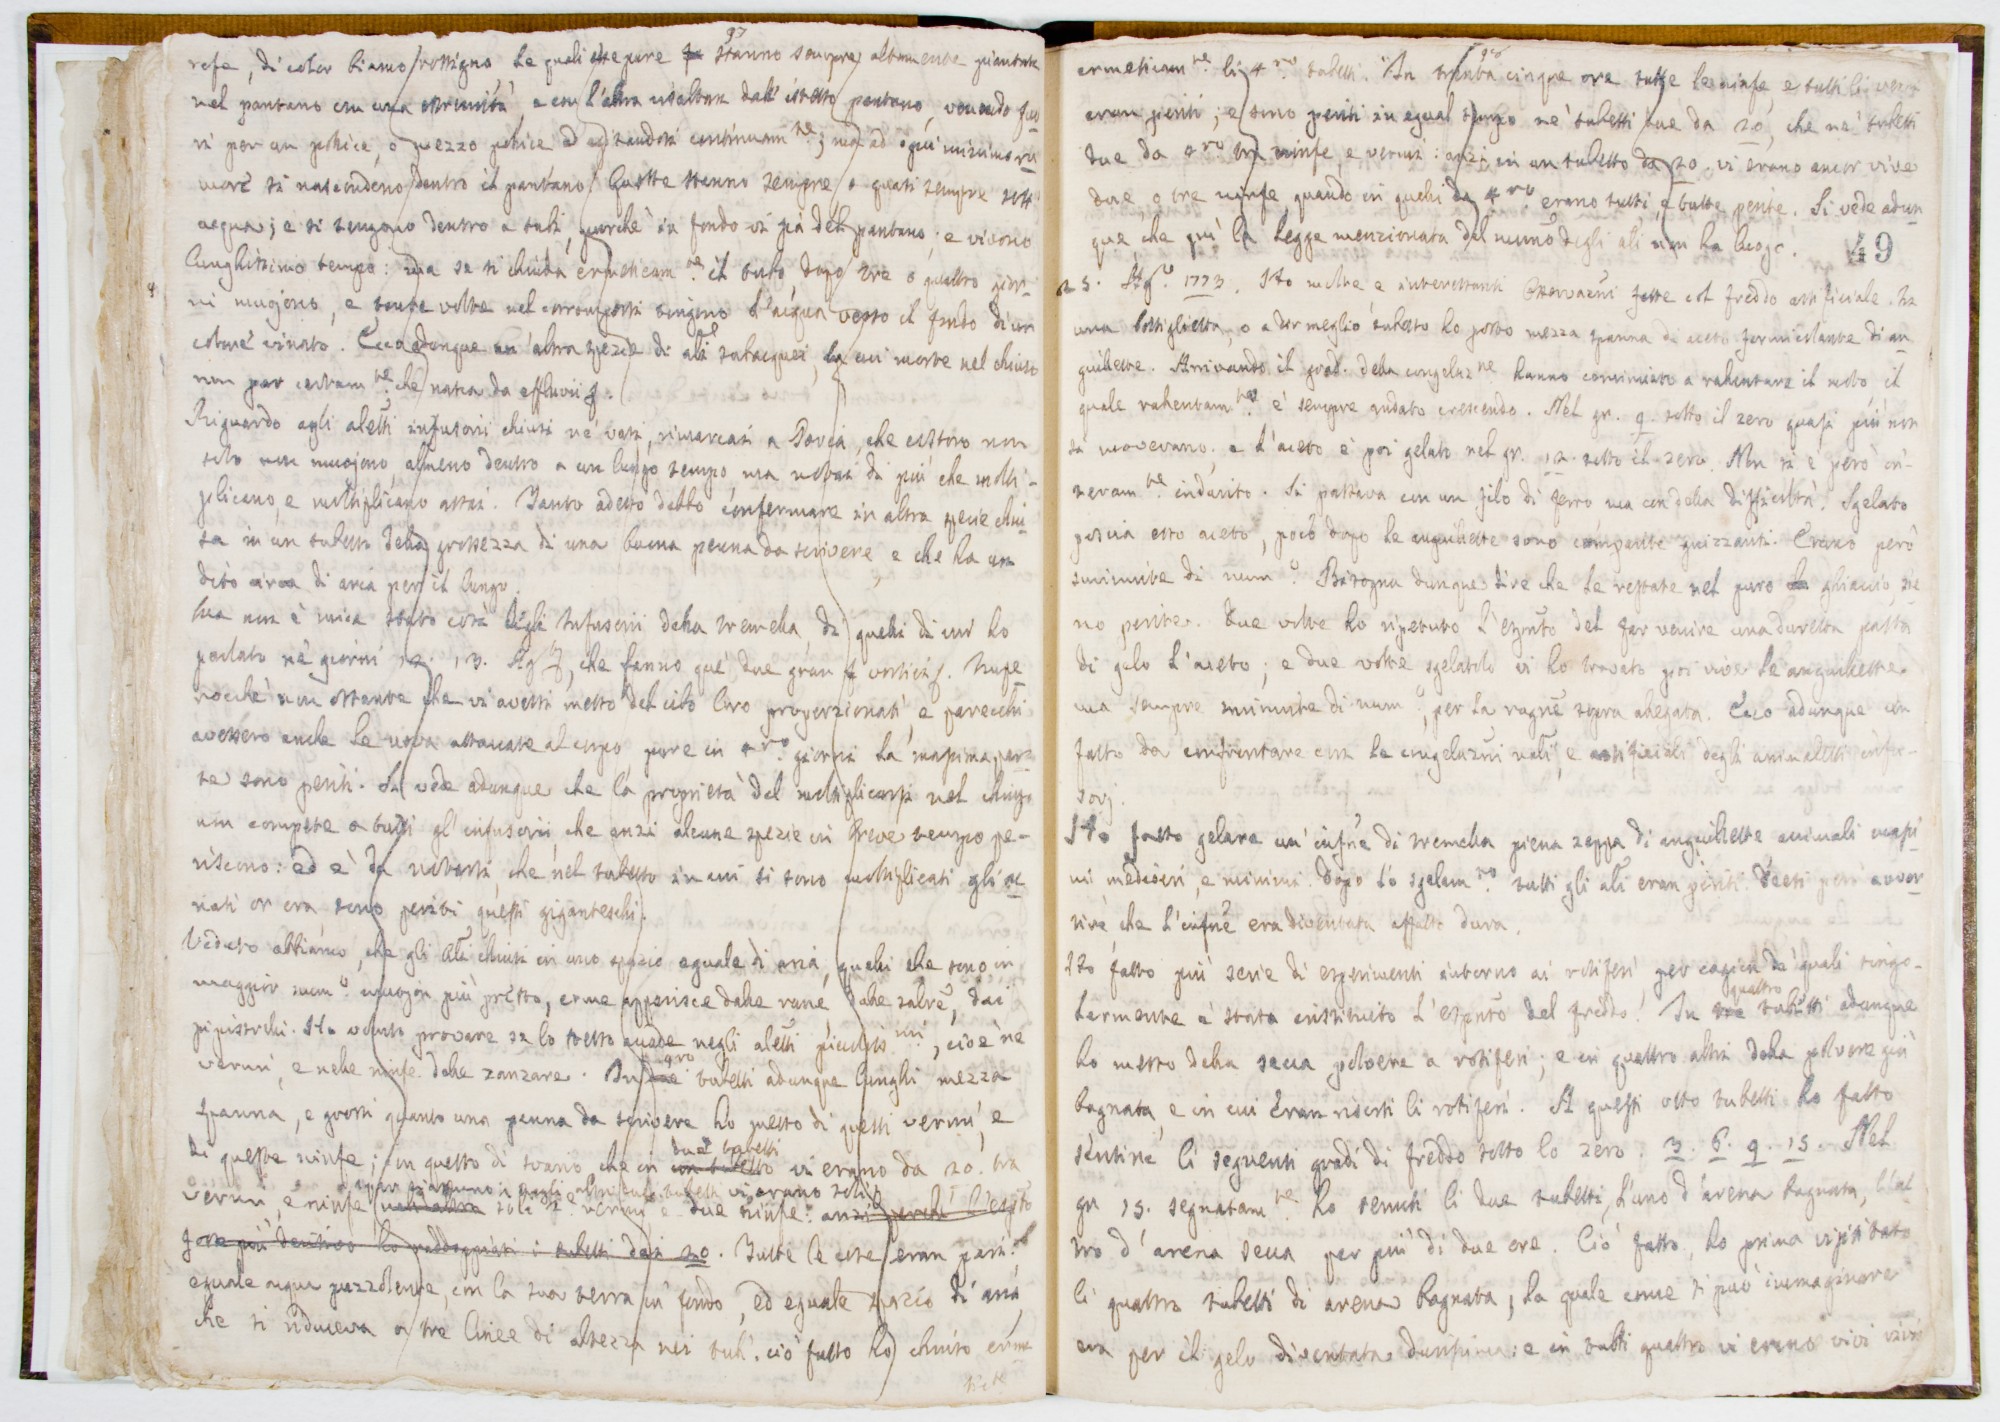 97
refe, di color biancorossigno, le quali pure stanno sempre altamente piantate
nel pantano con una estremità, e con l'altra risaltan dall' istesso pantano, venendo fuo-
ri per un pollice, o mezzo pollice ed agitandosi continuam.te; ma ad ogni minimo ru
more si nascondono dentro il pantano. Queste stanno sempre, o quasi sempre sott'
acqua; e si tengono dentro a tubi, purchè in fondo vi sia del pantano; e vivono
lunghissimo tempo: ma se si chiuda ermeticam.te il tubo, dopo tre o quattro gior-
ni muojono, e tante volte nel corrompersi tingono l'acqua verso il fondo di un
colore vinato. Ecco adunque un'altra spezie di ali subacquei, la cui morte nel chiuso
non par certam.te che nasca da effluvii.
Riguardo agli aletti infusorii chiusi ne' vasi, rimarcasi a Pavia, che costoro non
solo non muojono, almeno dentro a un lungo tempo, ma notasi di più che molti-
plicano, e moltiplicano assai. Tanto adesso debbo confermare in altra specie chiu
sa in un tubetto della grossezza di una buona penna da scrivere e che ha un
dito circa di aria per il lungo.
Ma non è mica stato così degli Infusorii della tremella, di quelli di cui ho
parlato ne' giorni 12. 13. Ag., che fanno que' due gran vortici. Impe
rocchè non ostante che vi avessi messo del cibo loro proporzionati, e parecchi
avessero anche le uova attaccate al corpo, pure in 4ro giorni la massima par-
te sono periti. Si vede adunque che la proprietà del moltiplicarsi nel chiuso
non compete a tutti gl' infusorii, che anzi alcune spezie in breve tempo pe-
riscono: ed è da notarsi, che nel tubetto in cui si sono moltiplicati gli ac
nati or ora sono periti questi giganteschi.
Veduto abbiamo, che gli ali chiusi in uno spazio eguale di aria, quelli che sono in
maggior num.o muojon più presto, come apparisce dalle rane, dalle salre, dai
pipistrelli. Ho voluto provare se lo stesso accade negli aletti piccolissimi, cioè ne'
vermi, e nelle ninfe delle zanzare. In 4ro tubetti adunque lunghi mezza
spanna, e grossi quanto una penna da scrivere ho messo di questi vermi, e
di queste ninfe; con questo di svario che in due tubetti un tubetto vi erano da 20. tra
vermi, e ninfe per ciascuno, e negli altri due tubetti vi erano soli due vermi, e due ninfe: anzi perchè l'esito
fosse più deciso ho raddoppiati i tubetti da 20. Tutte le cose eran pari:
eguale acqua puzzolente, con la sua terra in fondo, ed eguale spazio di aria,
che si riduceva a tre linee di altezza nei tubi. Ciò fatto ho chiuso erme
98
ermeticam.te li 4.ro tubetti. In trenta cinque ore tutte le ninfe, e tutti li vermi
eran periti; e sono periti in egual tempo ne' tubetti due da 20, che ne' tubetti
due da 4ro tra ninfe, e vermi: anzi in un tubetto da 20. vi erano ancor vive
due, o tre ninfe quando in quelli da 4ro erano tutti, e tutte perite. Si vede adun
que che quì la legge menzionata del numo degli ali non ha luogo.
49
25. Ag.o 1773. Ho molte e interessanti osservazni fatte col freddo artificiale. In
una bottiglietta, o a dir meglio tubetto ho posto mezza spanna di aceto formicolante di an
guillette. Arrivando il grad. della congelaz.ne hanno cominciato a rallentare il moto il
quale rallentam.to è sempre andato crescendo. Nel gr. 9. sotto il zero quasi più non
si movevano; e l'aceto è poi gelato nel gr. 12. sotto il zero. Non si è però in-
teram.te indurito. Si passava con un filo di ferro ma con della difficoltà. Sgelato
poscia esso aceto, poco dopo le anguillette sono comparite guizzanti. Erano però
sminuite di num.o Bisogna dunque dire che le restate nel puro ghiaccio, sie
no perite. Due volte ho ripetuto l'esp.to del far venire una duretta pasta
di gelo l'aceto; e due volte sgelatolo vi ho trovato poi vive le anguillette
ma sempre sminuite di num.o, per la ragne sopra allegata. Ecco adunque un
fatto da confrontare con le congelazni nali, e artificiali degli animaletti infu-
sorj.
Ho fatto gelare un' infne di tremella piena zeppa di anguillette animali massi
mi mediocri, e minimi. Dopo lo sgelam.to tutti gli ali eran periti. Deesi però avver
tire che l'infne era diventata affatto dura.
Ho fatto più serie di esperimenti intorno ai rotiferi, per cagion de' quali singo-
larmente è stato instituito l'espto del freddo. In quattro tre tubetti adunque
ho messo della secca polvere a rotiferi; e in quattro altri della polvere più
bagnata, e in cui eran risorti li rotiferi. A questi otto tubetti ho fatto
sentire li seguenti gradi di freddo sotto lo zero. 3. 6. 9. 15. Nel
gr. 15. segnatam.te ho tenuti li due tubetti, l'uno d'arena bagnata, l'al
tro d'arena secca per più di due ore. Ciò fatto, ho prima visitato
li quattro tubetti di arena bagnata, la quale come si può immaginare
era per il gelo diventata durissima: e in tutti quattro vi erano vivi